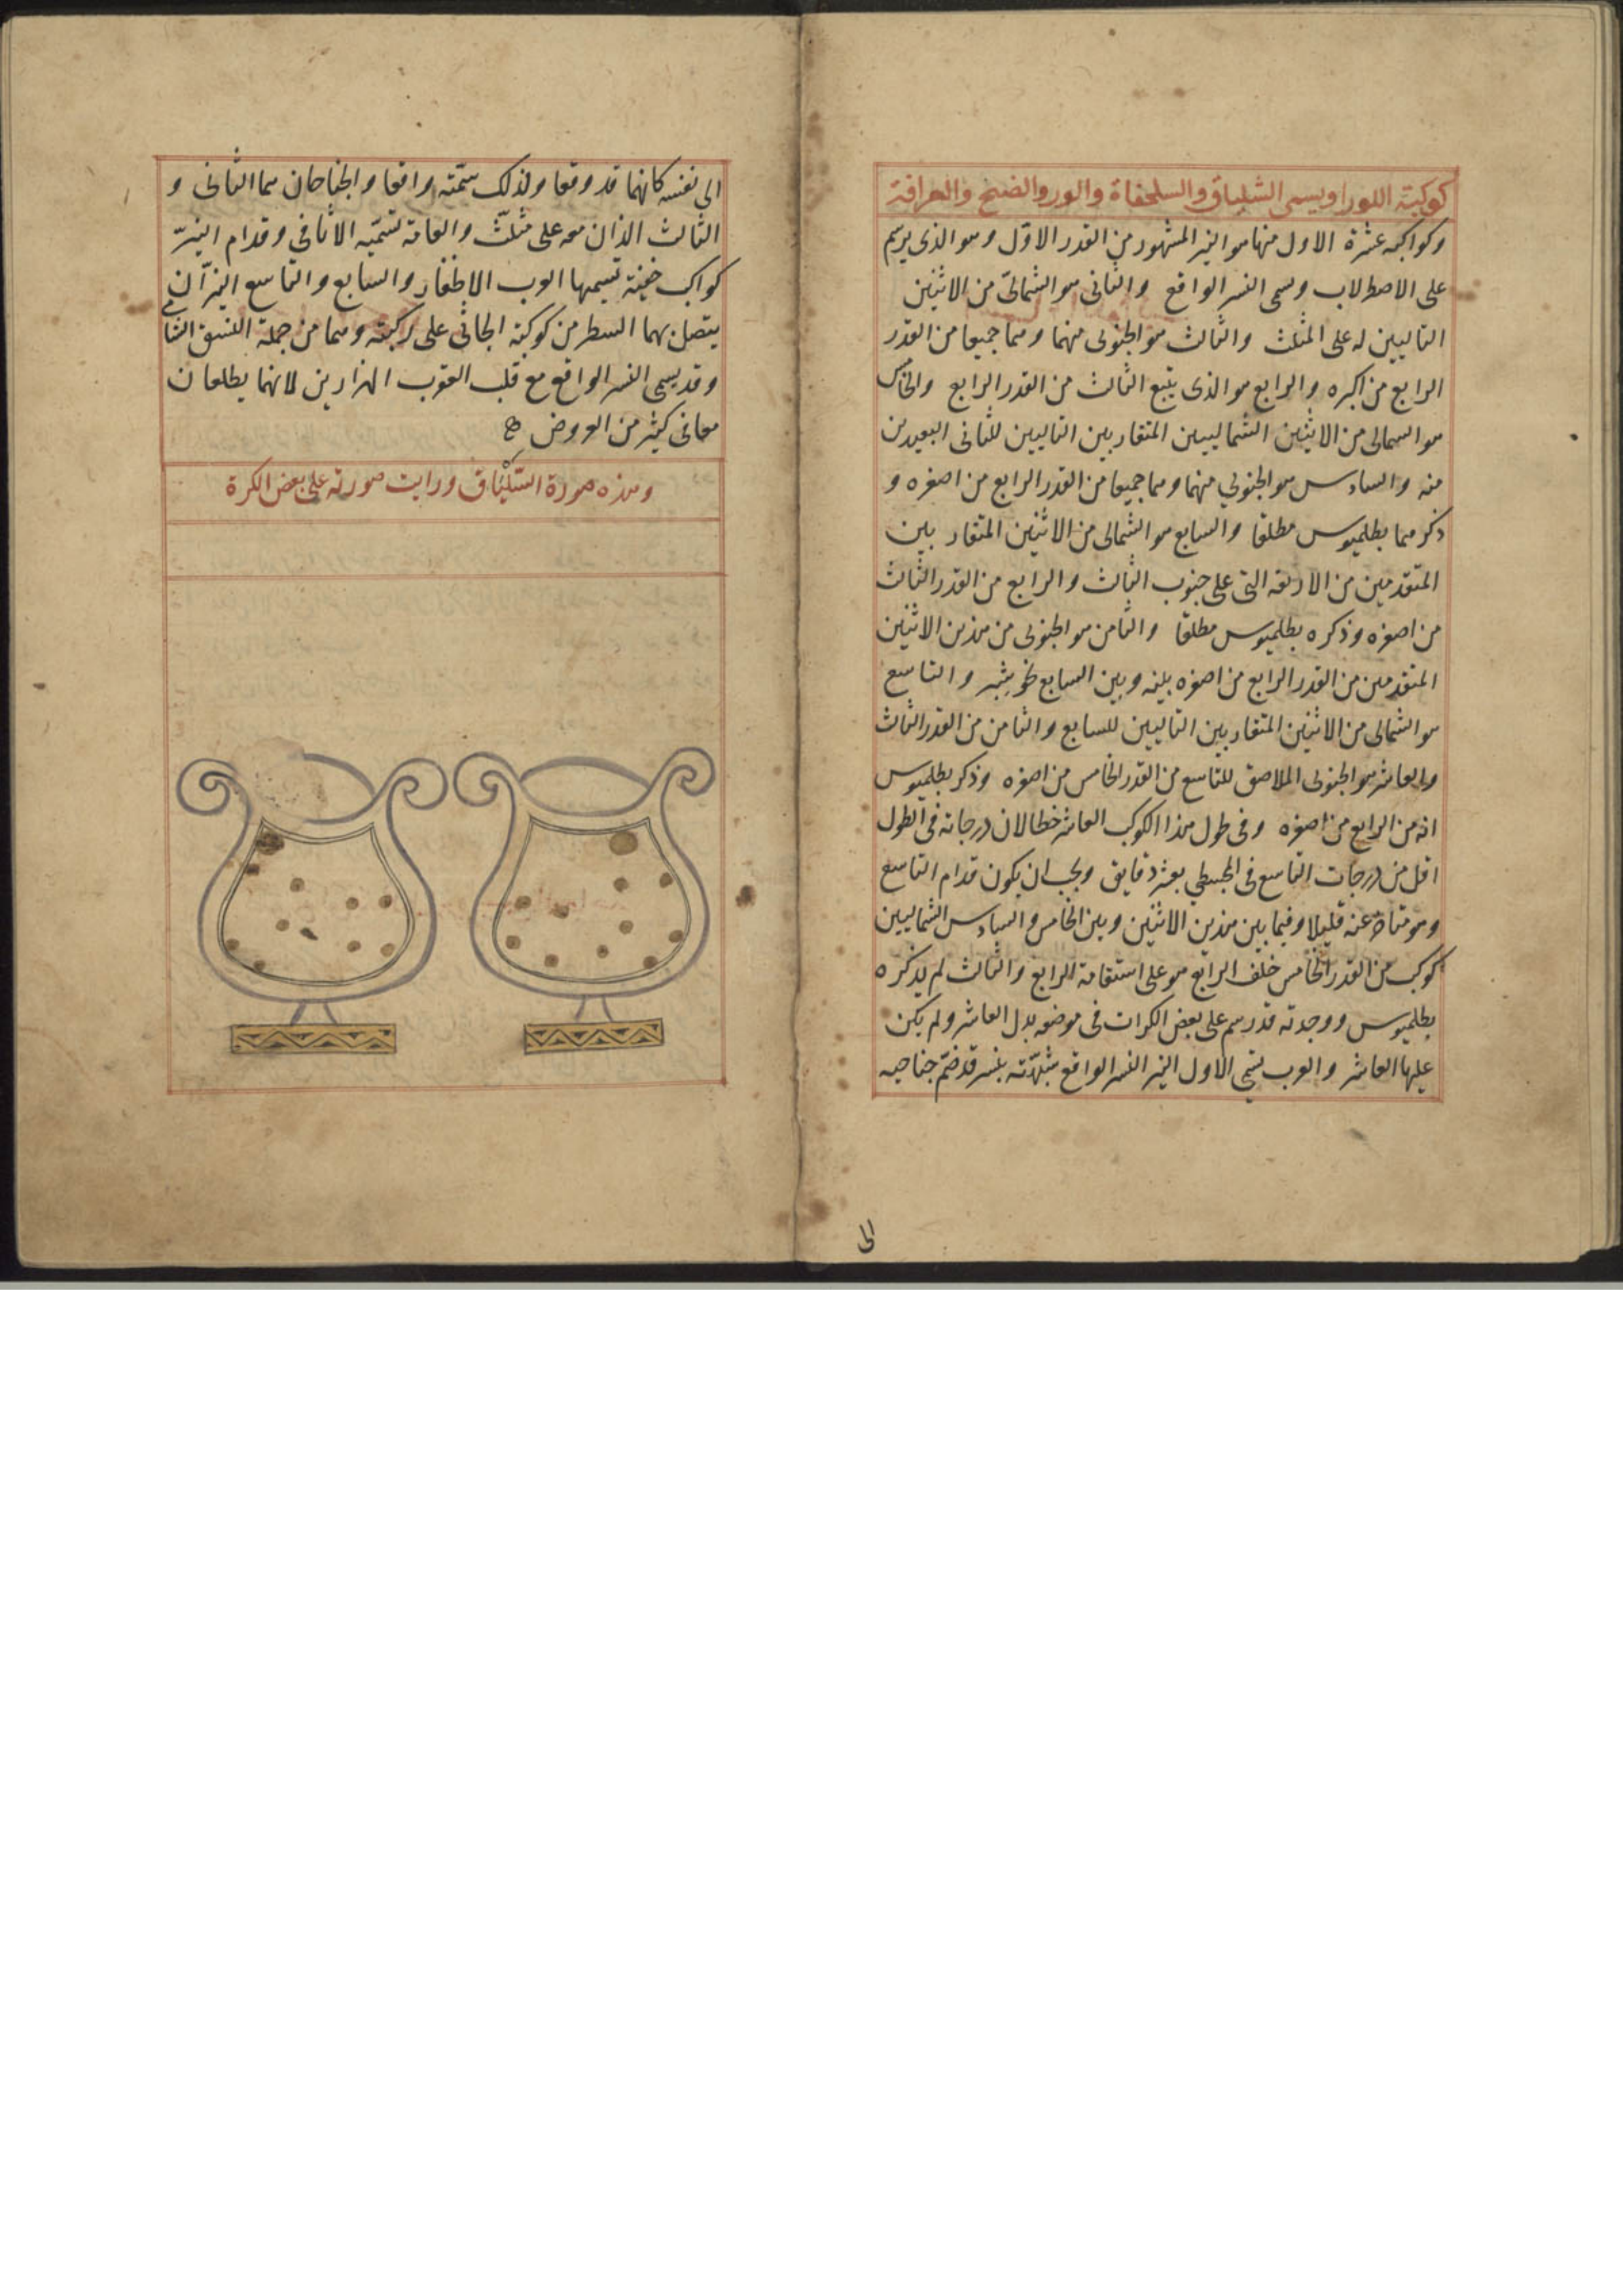 كوكبة اللورا ويسمى الشلياق والسلحفاة والوز والصنج والمعرافة
وكواكبه عشرة الاول منها هو النير المشهور من القدر الاول وهو الذى يرسم
على الاصطرلاب وسمى النسر الواقع والثانى هو الشمالى من الاثنين
التاليين له على المثلث والثالث هو الجنوبى منهما وهما جميعا من القدر
الرابع من اكبره والرابع هو الذى يتبع الثالث من القدر الرابع والخامس
هو الشمالى من الاثنين الشماليين المتقاربين التاليين للثانى البعيدين
منه والسادس هو الجنوبي منهما وهما جميعا من القدر الرابع من اصغره و
ذكرهما بطلميوس مطلقا والسابع هو الشمالى من الاثنين المتقاربين
المتقدمين من الاربعة التى على جنوب الثالث والرابع من القدر الثالث
من اصغره وذكره بطلميوس مطلقا والثامن هو الجنوبى من هذين الاثنين
المتقدمين من القدر الرابع من اصغره بينه وبين السابع نحو شبر والتاسع
هو الشمالى من الاثنين المتقاربين التاليين للسابع والثامن من القدر الثالث
والعاشر هو الجنوبى الملاصق للتاسع من القدر الخامس من اصغره وذكر بطلميوس
انه من الرابع من اصغره وفى طول هذا الكوكب العاشر خطا لان درجاته فى الطول
اقل من درجات التاسع فى المجسطي بعشر دقايق ويجب ان يكون قدام التاسع
وهو متاخر عنه قليلا وفيما بين هذين الاثنين وبين الخامس والسادس الشماليين
كوكب من القدر الخامس خلف الرابع هو على استقامة الرابع والثالث لم يذكره
بطلميوس ووجدته قد رسم على بعض الكرات فى موضعه بدل العاشر ولم يكن
عليها العاشر والعرب تسمى الاول النير النسر الواقع شبهته بنسر قد ضم جناحيه
الى
الى نفسه كانهما قد وقعا ولذلك سمته واقعا والجناحان هما الثانى و
الثالث الذان معه على مثلث والعامة تسميه الاثافى وقدام النير
كواكب خفية تسميها العرب الاظفار والسابع والتاسع النيران
يتصل بهما السطر من كوكبة الجاثى على ركبته وهما من جملة النسق الشامى
وقد يسمى النسر الواقع مع قلب العقرب الهرارين لانهما يطلعان
معا فى كثير من العروض
وهذه صورة الشلياق ورايت صورته على بعض الكرة